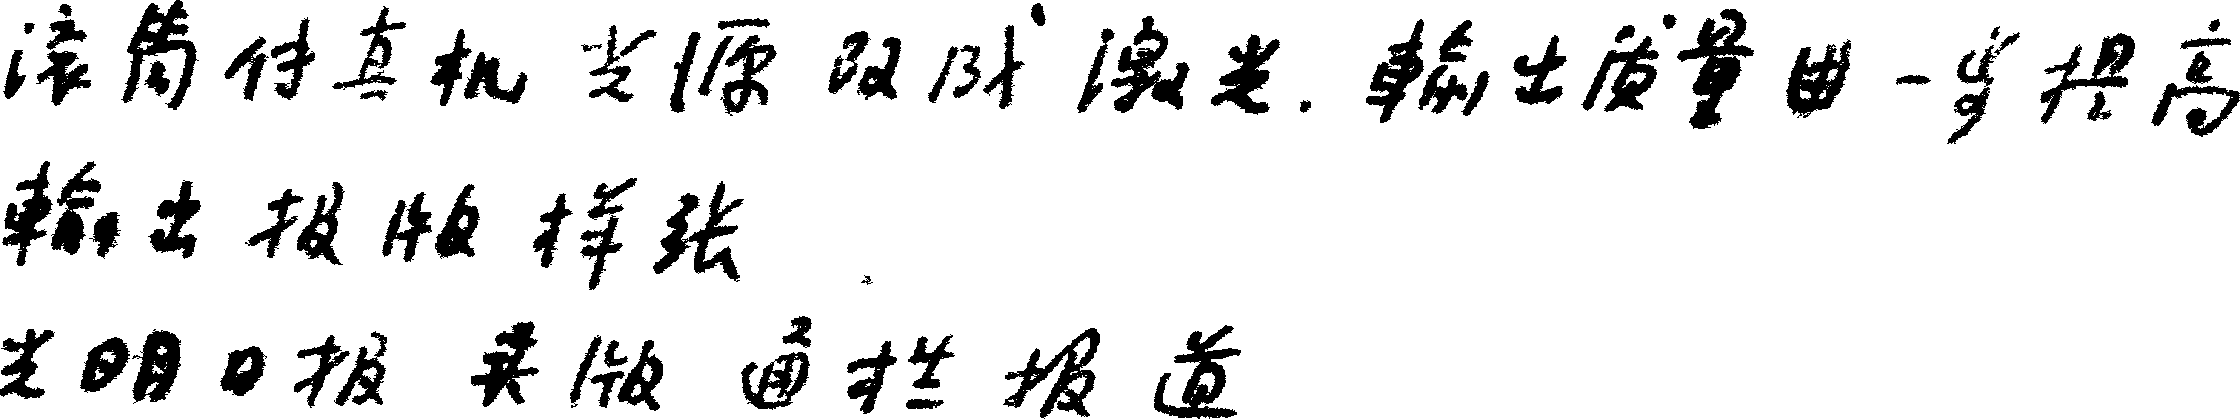 滚筒传真机光源改成激光.输出质量进一步提高
输出报版样张
光明日报头版通栏报道